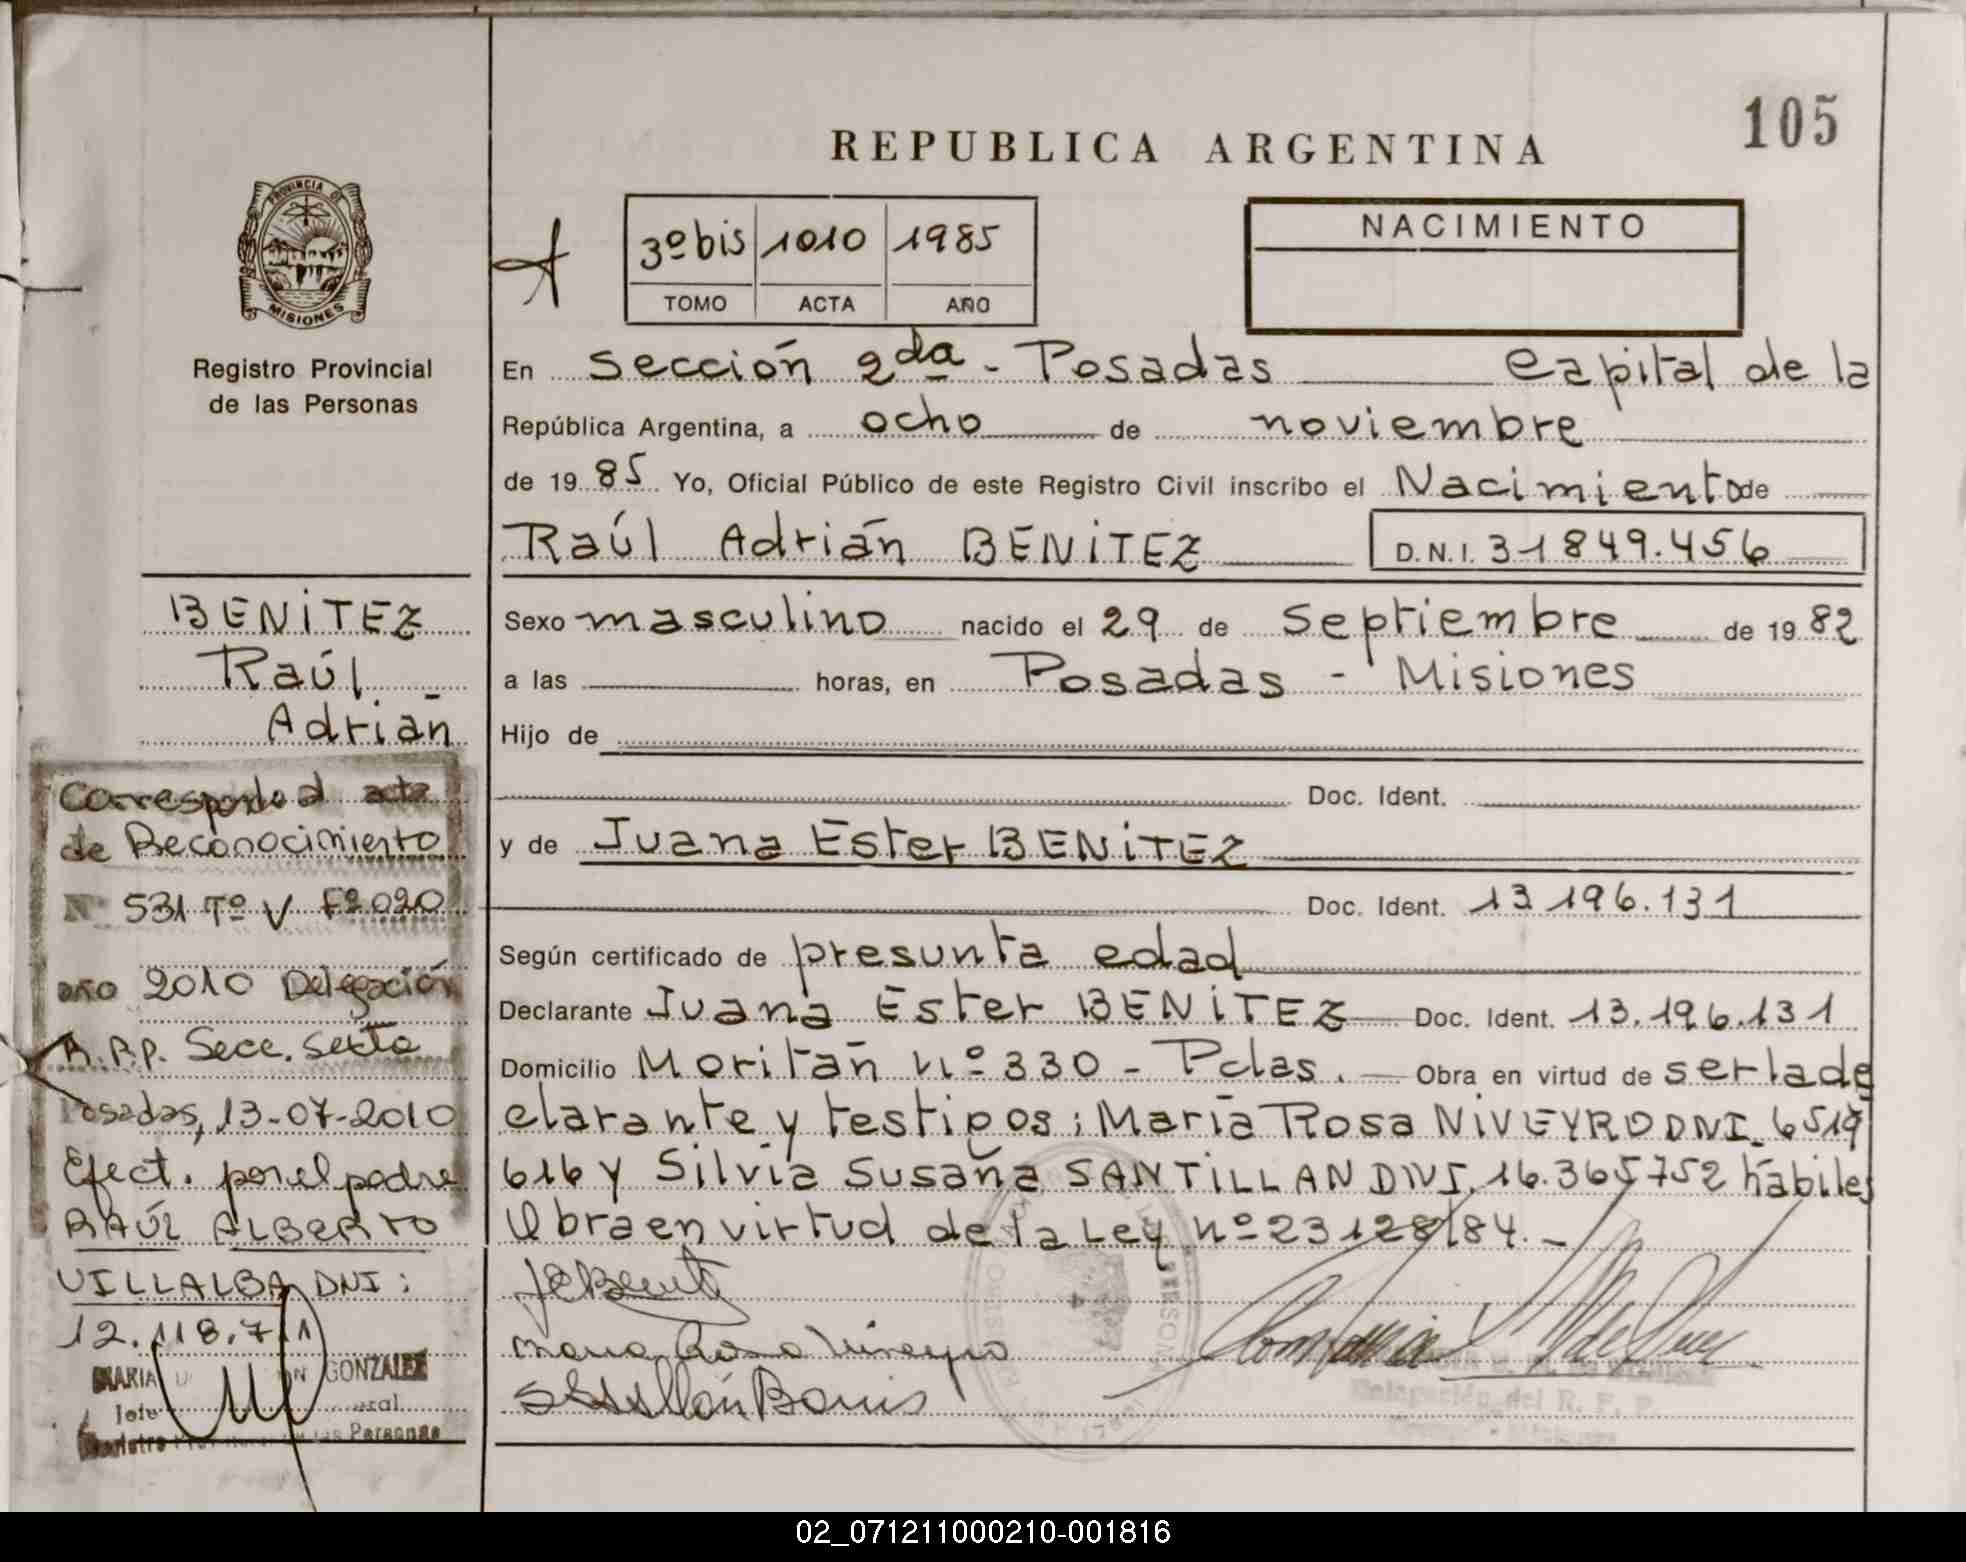 105
REPUBLICA ARGENTINA
PROVINCIA DE
MISIONES
Registro Provincial
de las Personas
3º bis 1010 1985
TOMO ACTA AÑO
NACIMIENTO
En Sección 2da - Posadas Capital de la
República Argentina, a ocho de noviembre
de 1985 Yo, Oficial Público de este Registro Civil inscribo el Nacimiento de
Raúl Adrián BENITEZ D.N.I. 31849.456
Sexo masculino nacido el 29 de Septiembre de 1982
a las horas, en Posadas - Misiones
Hijo de
Doc. Ident.
y de Juana Ester BENITEZ
Doc. Ident. 13 196.131
Según certificado de presunta edad
Declarante Juana Ester BENITEZ Doc. Ident. 13.196.131
Domicilio Moritán nº 330 - Pdas. Obra en virtud de ser la de
clarante y testigos: María Rosa NIVEYRO DNI. 6519
616 y Silvia Susana SANTILLAN DNI. 16.365752 hábiles
Obra en virtud de la Ley nº 23128/84.-
BENITEZ
Raúl
Adrián
Corresponde al acta
de Reconocimiento
Nº 531 Tº V Fº 020
año 2010 Delegación
R.P.P. Secc. Sexta
Posadas, 13-07-2010
Efect. por el padre
RAÚL ALBERTO
VILLALBA DNI:
12.118.711
MARIA GONZALEZ
Jefe
Registro de las Personas
Delegación del R. P. P.
02_071211000210-001816